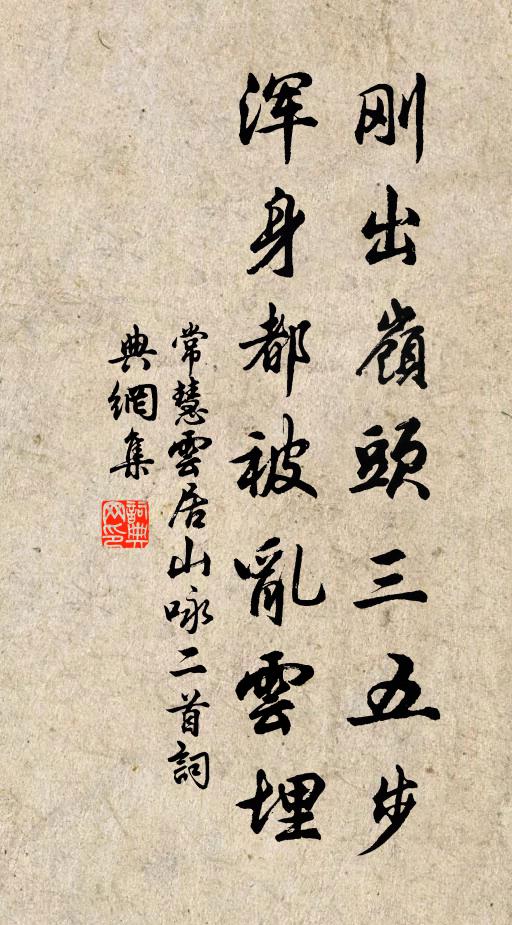 刚出嶺頭三五步
渾身都被亂雲埋
常慧雲居山咏二首詞
典網集
詞典網印